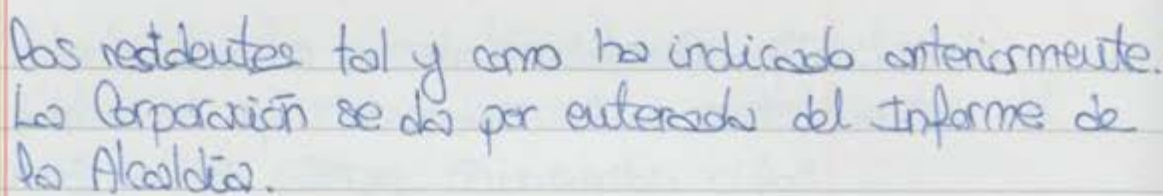 los residentes tal y como ha indicado anteriormente.
La Corporación se da por enterada del Informe de
la Alcaldía.